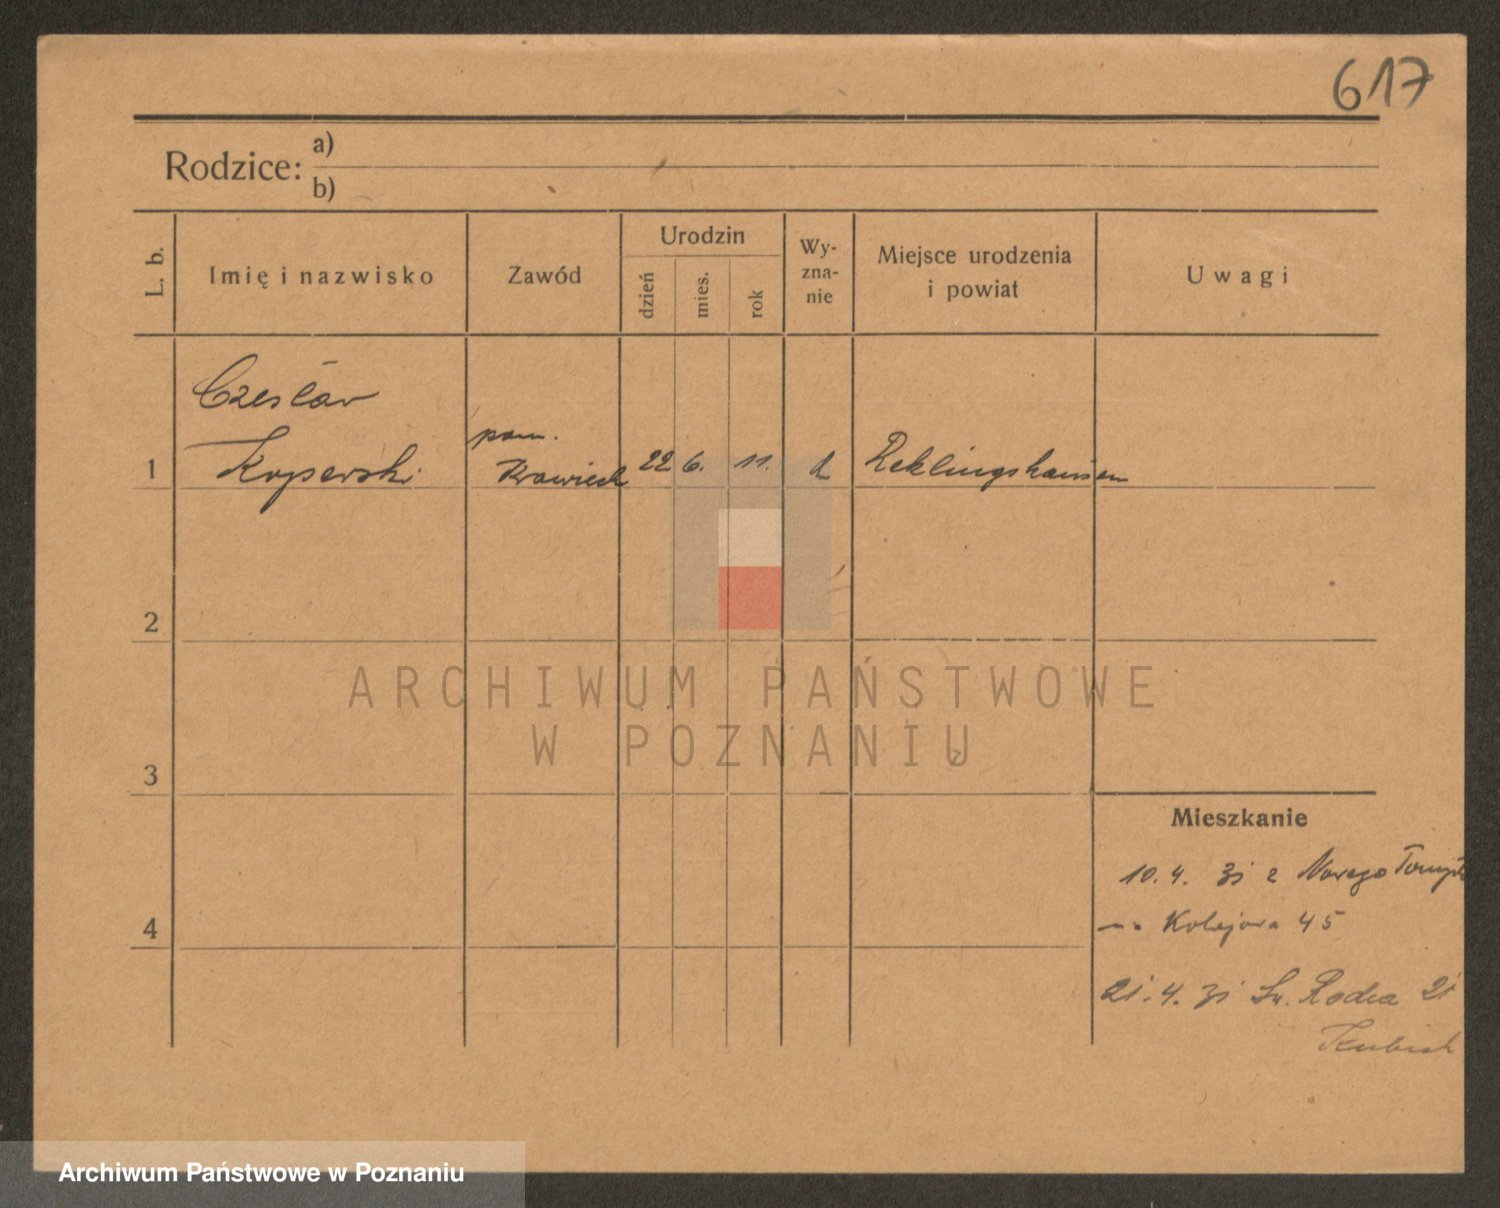 617
Rodzice: a)
b)
L. b.
Imię i nazwisko
Zawód
Urodzin
dzień
mies.
rok
Wy-
zna-
nie
Miejsce urodzenia
i powiat
Uwagi
Czesław
1 Koperski pom. 22 6. 11. Reklingshausen
2
3
4
Mieszkanie
10.4. z Nowego Tomyśla
na Kolejowa 45
21.4. 21
ARCHIWUM PAŃSTWOWE
W POZNANIU
Archiwum Państwowe w Poznaniu